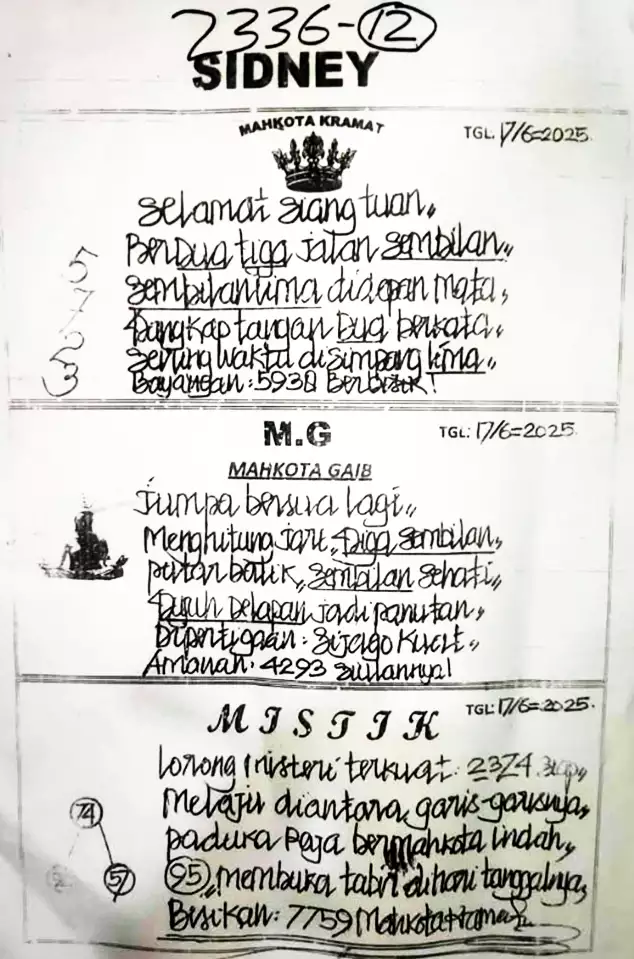 2336-12
SIDNEY
MAHKOTA KRAMAT
TGL. 17/6=2025.
Selamat siang tuan,,
BerDua tiga jalan sembilan,,
Sembilan lima didepan mata,
Tangkap tangan Dua berkata,
Seiring waktu disimpang lima,,
Bayangan: 5930 Berbisik!
5
7
3
M.G
TGL: 17/6=2025
MAHKOTA GAIB
Jumpa bersua lagi,,
Menghitung jari, Tiga sembilan,
putar balik,, sembilan sehati,,
Tujuh Delapan jadi panutan,
Dipertigaan: Sijago kucit,,
Amanah: 4293
MISTIK
TGL: 17/6=2025.
Lorong misteri terkuat: 2374 siap,,
Melaju diantara garis-garisnya,
paduka Raja bermahkota indah,
95,, membuka tabir dihari tanggalnya,
Bisikan: 7759 Mahkota
74
57